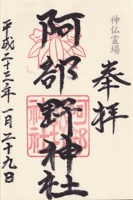 神仏霊場
奉拝
阿部野神社
平成二十三年一月二十九日